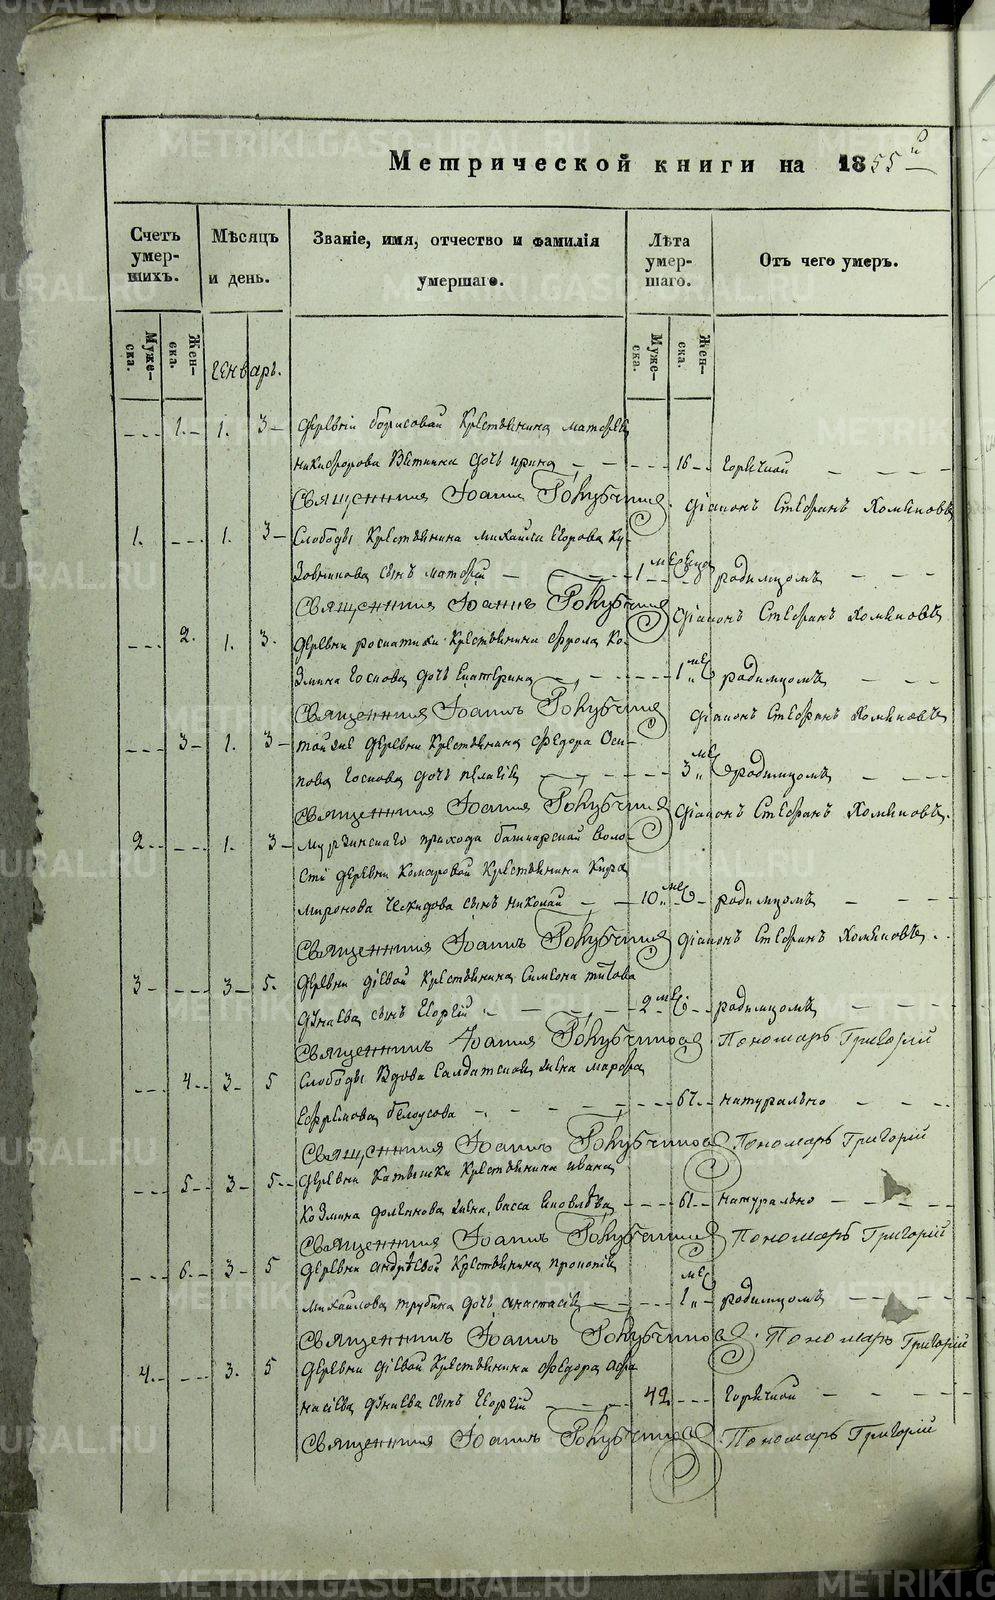 Метрической книги на 1855й
Счетъ умер-
шихъ.
Мѣсяцъ
и день.
Званіе, имя, отчество и фамилія
умершаго.
Лѣта
умер-
шаго.
Отъ чего умеръ.
Муже-
ска.
Жен-
ска.
Муже-
ска.
Жен-
ска.
Генварь.
1. 1. 3 деревни Борисовай Крестьянина Матофея
Никифорова Вяткина дочь Ирина 16 горячкой
Священникъ Іоаннъ діаконъ Стефанъ Хомяковъ
1. 1. 3 Слободы Крестьянина Михайла Егорова Ку-
совникова сынъ Матфей 1 месеца родимцомъ
Священникъ Іоаннъ діаконъ Стефанъ Хомяковъ
2. 1. 3. деревни Крестьянина Фрола Ко-
змина дочь Екатерина 1 мес родимцомъ
Священникъ Іоаннъ діаконъ Стефанъ Хомяковъ
3 1. 3 той же деревни Крестьянина Федора Оси-
пова дочь Пелагія 3 мес родимцомъ
Священникъ Іоаннъ діаконъ Стефанъ Хомяковъ.
2 1. 3 Мурзинскаго прихода Башкарской воло-
сти деревни Комаровой Крестьянина Кира
Миронова сынъ Николай 10 мес родимцомъ
Священникъ Іоаннъ діаконъ Стефанъ Хомяковъ.
3 3 5. деревни діевой Крестьянина Симеона Титова
дунаева сынъ Георгій 2 мес родимцомъ
Священникъ Іоаннъ Пономарь Григорій
4 3 5 Слободы Вдова Салдатская жена Марфа
Ефремова Белоусова 67 натурально
Священникъ Іоаннъ Пономарь Григорій
5 3 5 деревни Крестьянина Ивана
Козмина жена, Васса Яковлева 61 натурально
Священникъ Іоаннъ Пономарь Григорій
6 3 5 деревни Андреевой Крестьянина Прокопія
Михайлова Трубина дочь Анастасія мес родимцомъ
Священникъ Іоаннъ Пономарь Григорій
4. 3. 5 деревни діевой Крестьянина Федора Афа-
насіева дунаева сынъ Георгій 42 горячкой
Священникъ Іоаннъ Пономарь Григорій
METRIKI.GASO-URAL.RU